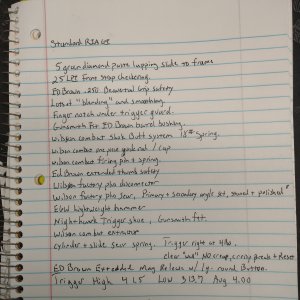 Standard RIA GI
5 gram diamond paste lapping slide to frame
25 LPI Front strap checkering.
ED Brown .250 Beavertail Grip safety
Lots of "blending" and smoothing.
Finger notch under trigger guard.
Gunsmith Fit ED Brown barrel bushing.
Wilson combat Shok Buff system 18# Spring.
Wilson combat one piece guide rod / Cap
Wilson combat firing pin + spring.
Ed Brown extended thumb safety
Wilson factory plus disconnector
Wilson factory plus Sear, Primary + secondary angle set, stoned + polished
EGW lightweight hammer
Nighthawk Trigger shoe, Gunsmith fit.
Wilson combat extractor
cylinder + slide sear spring. Trigger right at 4lbs.
clear "wall" NO creep, crisp break + reset
ED Brown Extended Mag Release w/ lg. round Button.
Trigger High 4 L5 Low 3 13.7 Avg 4.00